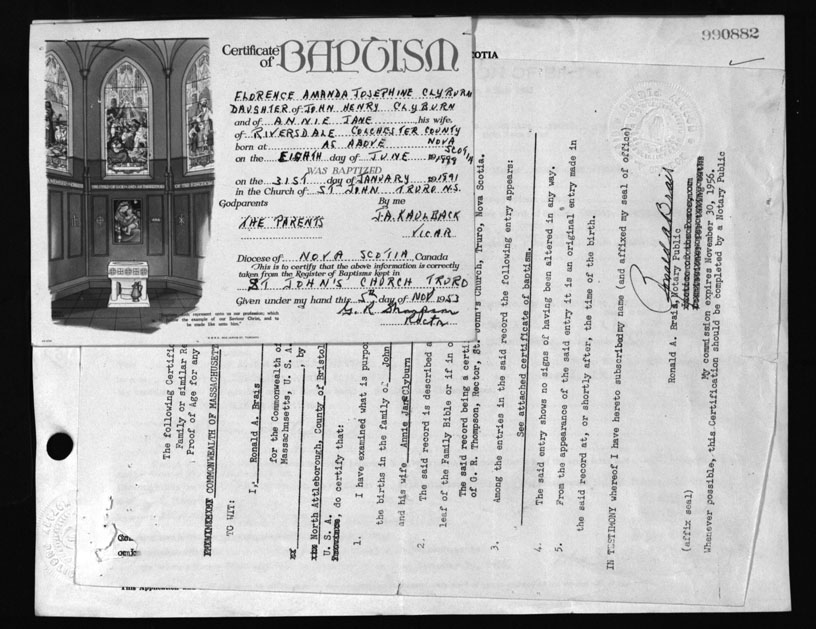 990882
Certificate of BAPTISM
FLORENCE AMANDA JOSEPHINE CLYBURN
DAUGHTER of JOHN HENRY CLYBURN
and of ANNIE JANE, his wife,
of RIVERSDALE COLCHESTER COUNTY
born at AS ABOVE NOVA SCOTIA
on the EIGHTH day of JUNE
WAS BAPTIZED
on the 31ST day of JANUARY 1891
in the Church of ST JOHN TRURO N.S.
Godparents By me
THE PARENTS J.A. KAULBACK
VICAR
Diocese of NOVA SCOTIA Canada
This is to certify that the above information is correctly
taken from the Register of Baptisms kept in
ST JOHN'S CHURCH TRURO
Given under my hand this 5th day of NOV 1953
G. R. Thompson
Rector
represent unto us our profession; which
the example of our Saviour Christ, and to
be made like unto him.
OTIA
The following Certifi
Family or similar R
Proof of Age for any
COMMONWEALTH OF MASSACHUSETT
TO WIT:
I, Ronald A. Brais
for the Commonwealth of
Massachusetts, U. S. A.
, by
North Attleborough, County of Bristol
U. S. A.
Province, do certify that:
1. I have examined what is purpo
the births in the family of John
and his wife Annie Jane Clyburn
2. The said record is described a
leaf of the Family Bible or if in o
The said record being a certi
of G. R. Thompson, Rector, St. John's Church, Truro, Nova Scotia.
3. Among the entries in the said record the following entry appears:
See attached certificate of baptism.
4. The said entry shows no signs of having been altered in any way.
5. From the appearance of the said entry it is an original entry made in
the said record at, or shortly after, the time of the birth.
IN TESTIMONY whereof I have hereto subscribed my name (and affixed my seal of office)
Ronald A Brais
Ronald A. Brais, Notary Public
My commission expires November 30, 1956.
(affix seal)
Whenever possible, this Certification should be completed by a Notary Public
This Application